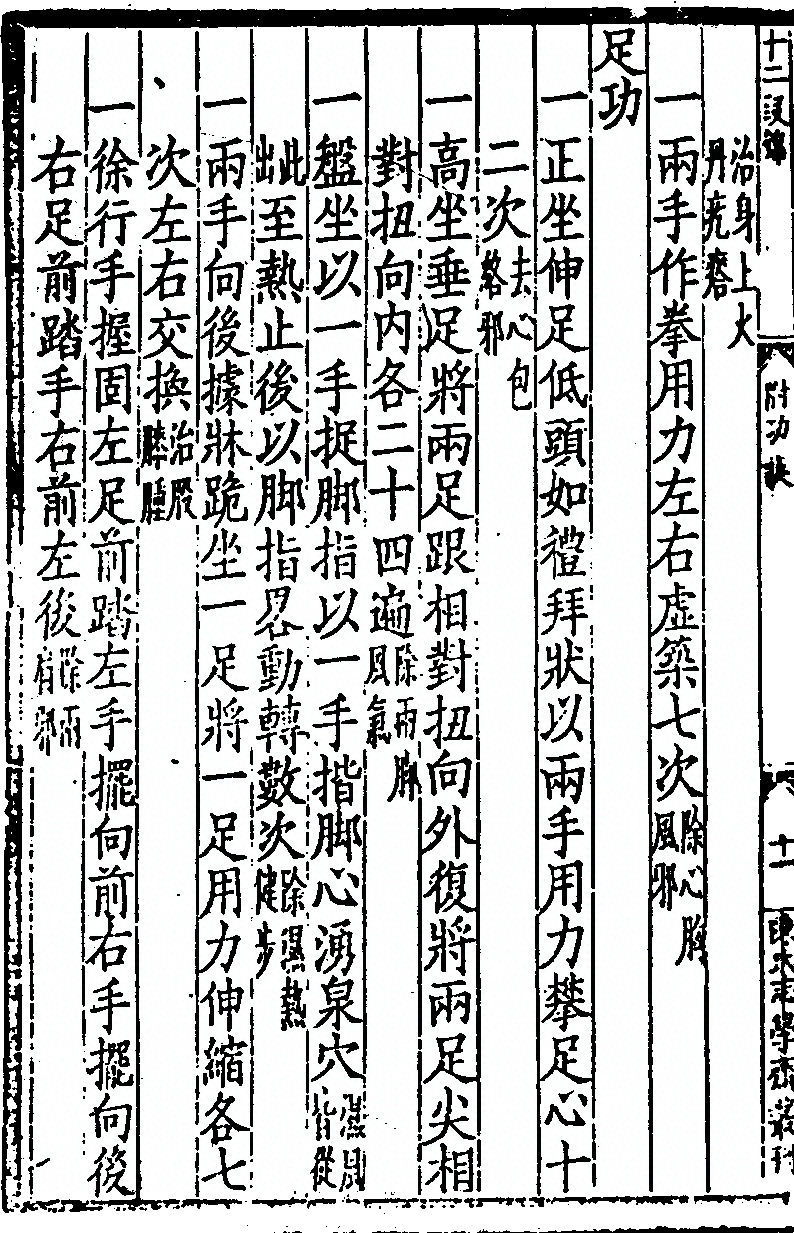 十二段錦 附功訣 十一 志學齋叢刊
治身上火丹疙瘩
一兩手作拳用力左右虛築七次除心胸風邪
足功
一正坐伸足低頭如禮拜狀以兩手用力攀足心十
二次去心包絡邪
一高坐垂足將兩足跟相對扭向外復將兩足尖相
對扭向內各二十四遍除兩脚風氣
一盤坐以一手捉脚指以一手揩脚心湧泉穴濕風皆從
此出至熱止後以脚指畧動轉數次除濕熱健步
一兩手向後據牀跪坐一足將一足用力伸縮各七
次左右交換治股膝腫
一徐行手握固左足前踏左手擺向前右手擺向後
右足前踏手右前左後除兩肩邪